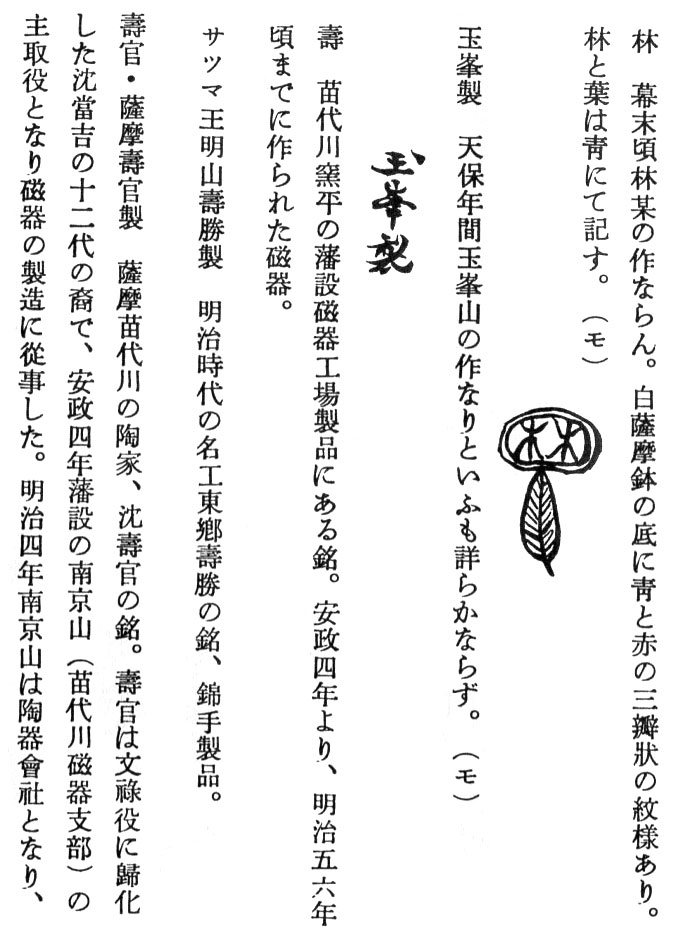 林　幕末頃林某の作ならん。白薩摩鉢の底に靑と赤の三瓣狀の紋樣あり。
林と葉は靑にて記す。（モ）
林
玉峯製　天保年間玉峯山の作なりといふも詳らかならず。（モ）
玉峯製
壽　苗代川窯平の藩設磁器工場製品にある銘。安政四年より、明治五六年
頃までに作られた磁器。
サツマ王明山壽勝製　明治時代の名工東鄕壽勝の銘、錦手製品。
壽官・薩摩壽官製　薩摩苗代川の陶家、沈壽官の銘。壽官は文祿役に歸化
した沈當吉の十二代の裔で、安政四年藩設の南京山（苗代川磁器支部）の
主取役となり磁器の製造に從事した。明治四年南京山は陶器會社となり、